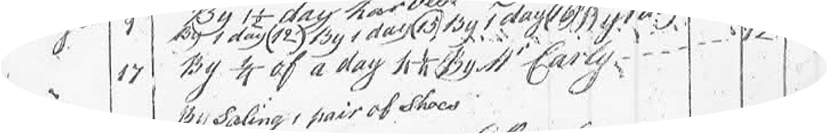 9 By 1½ day har
By 1 day (12) By 1 day (13) By 1 day (16) By 1
17 By ¼ of a day By Mr Early
By Soling 1 pair of Shoes